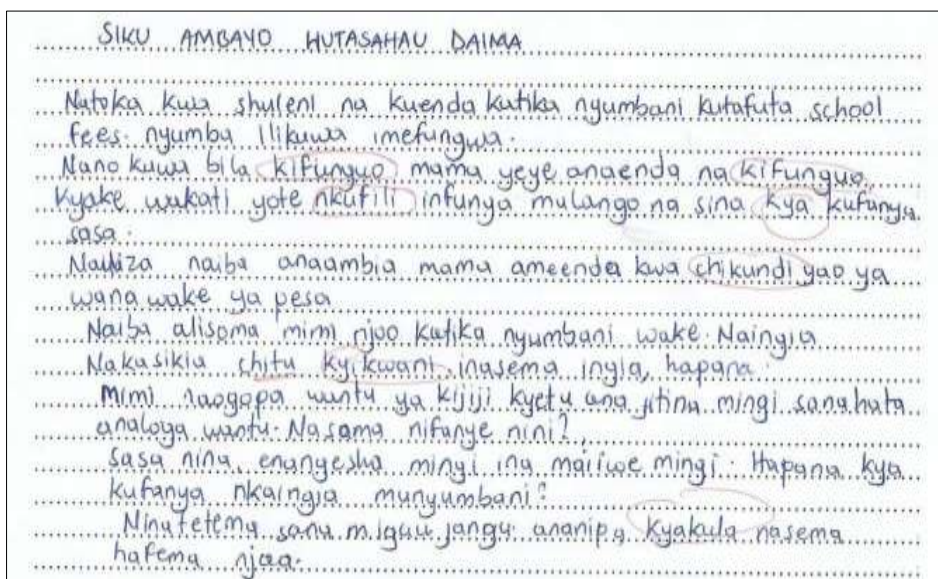 SIKU AMBAYO HUTASAHAU DAIMA
Natoka kwa shuleni na kuenda katika nyumbani kutafuta school
fees. nyumba ilikuwa imefungwa.
Nano kuwa bila kifunguo mama yeye anaenda na kifunguo
kyake wakati yote nkufili infunya mulango na sina kya kufanya
sasa.
Nauliza naiba anaambia mama ameenda kwa chikundi yao ya
wana wake ya pesa
Naiba alisoma mimi njoo katika nyumbani wake. Naingia
Nakasikia chitu kyikwani inasema ingia, hapana.
Mimi naogopa wantu ya kijiji kyetu ana jitina mingi sana hata
analoga wantu. Nasama nifanye nini?
Sasa nina enangesha mingi ina maiiwe mingi. Hapana kya
kufanya nkaingia munyumbani?
Ninatetema sana miguu jangu ananipa kyakula nasema
hafema njaa.